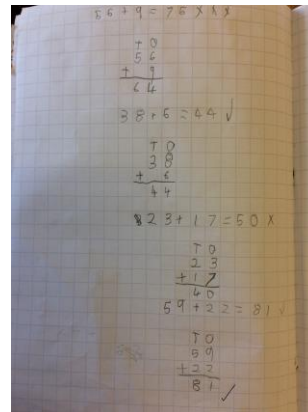 56+9=75 x x x
TO
56
+ 9
64
38+6=44 ✓
TO
38
+ 6
44
23+17=50 x
TO
23
+17
40
59+22=81 ✓
TO
59
+22
81 ✓